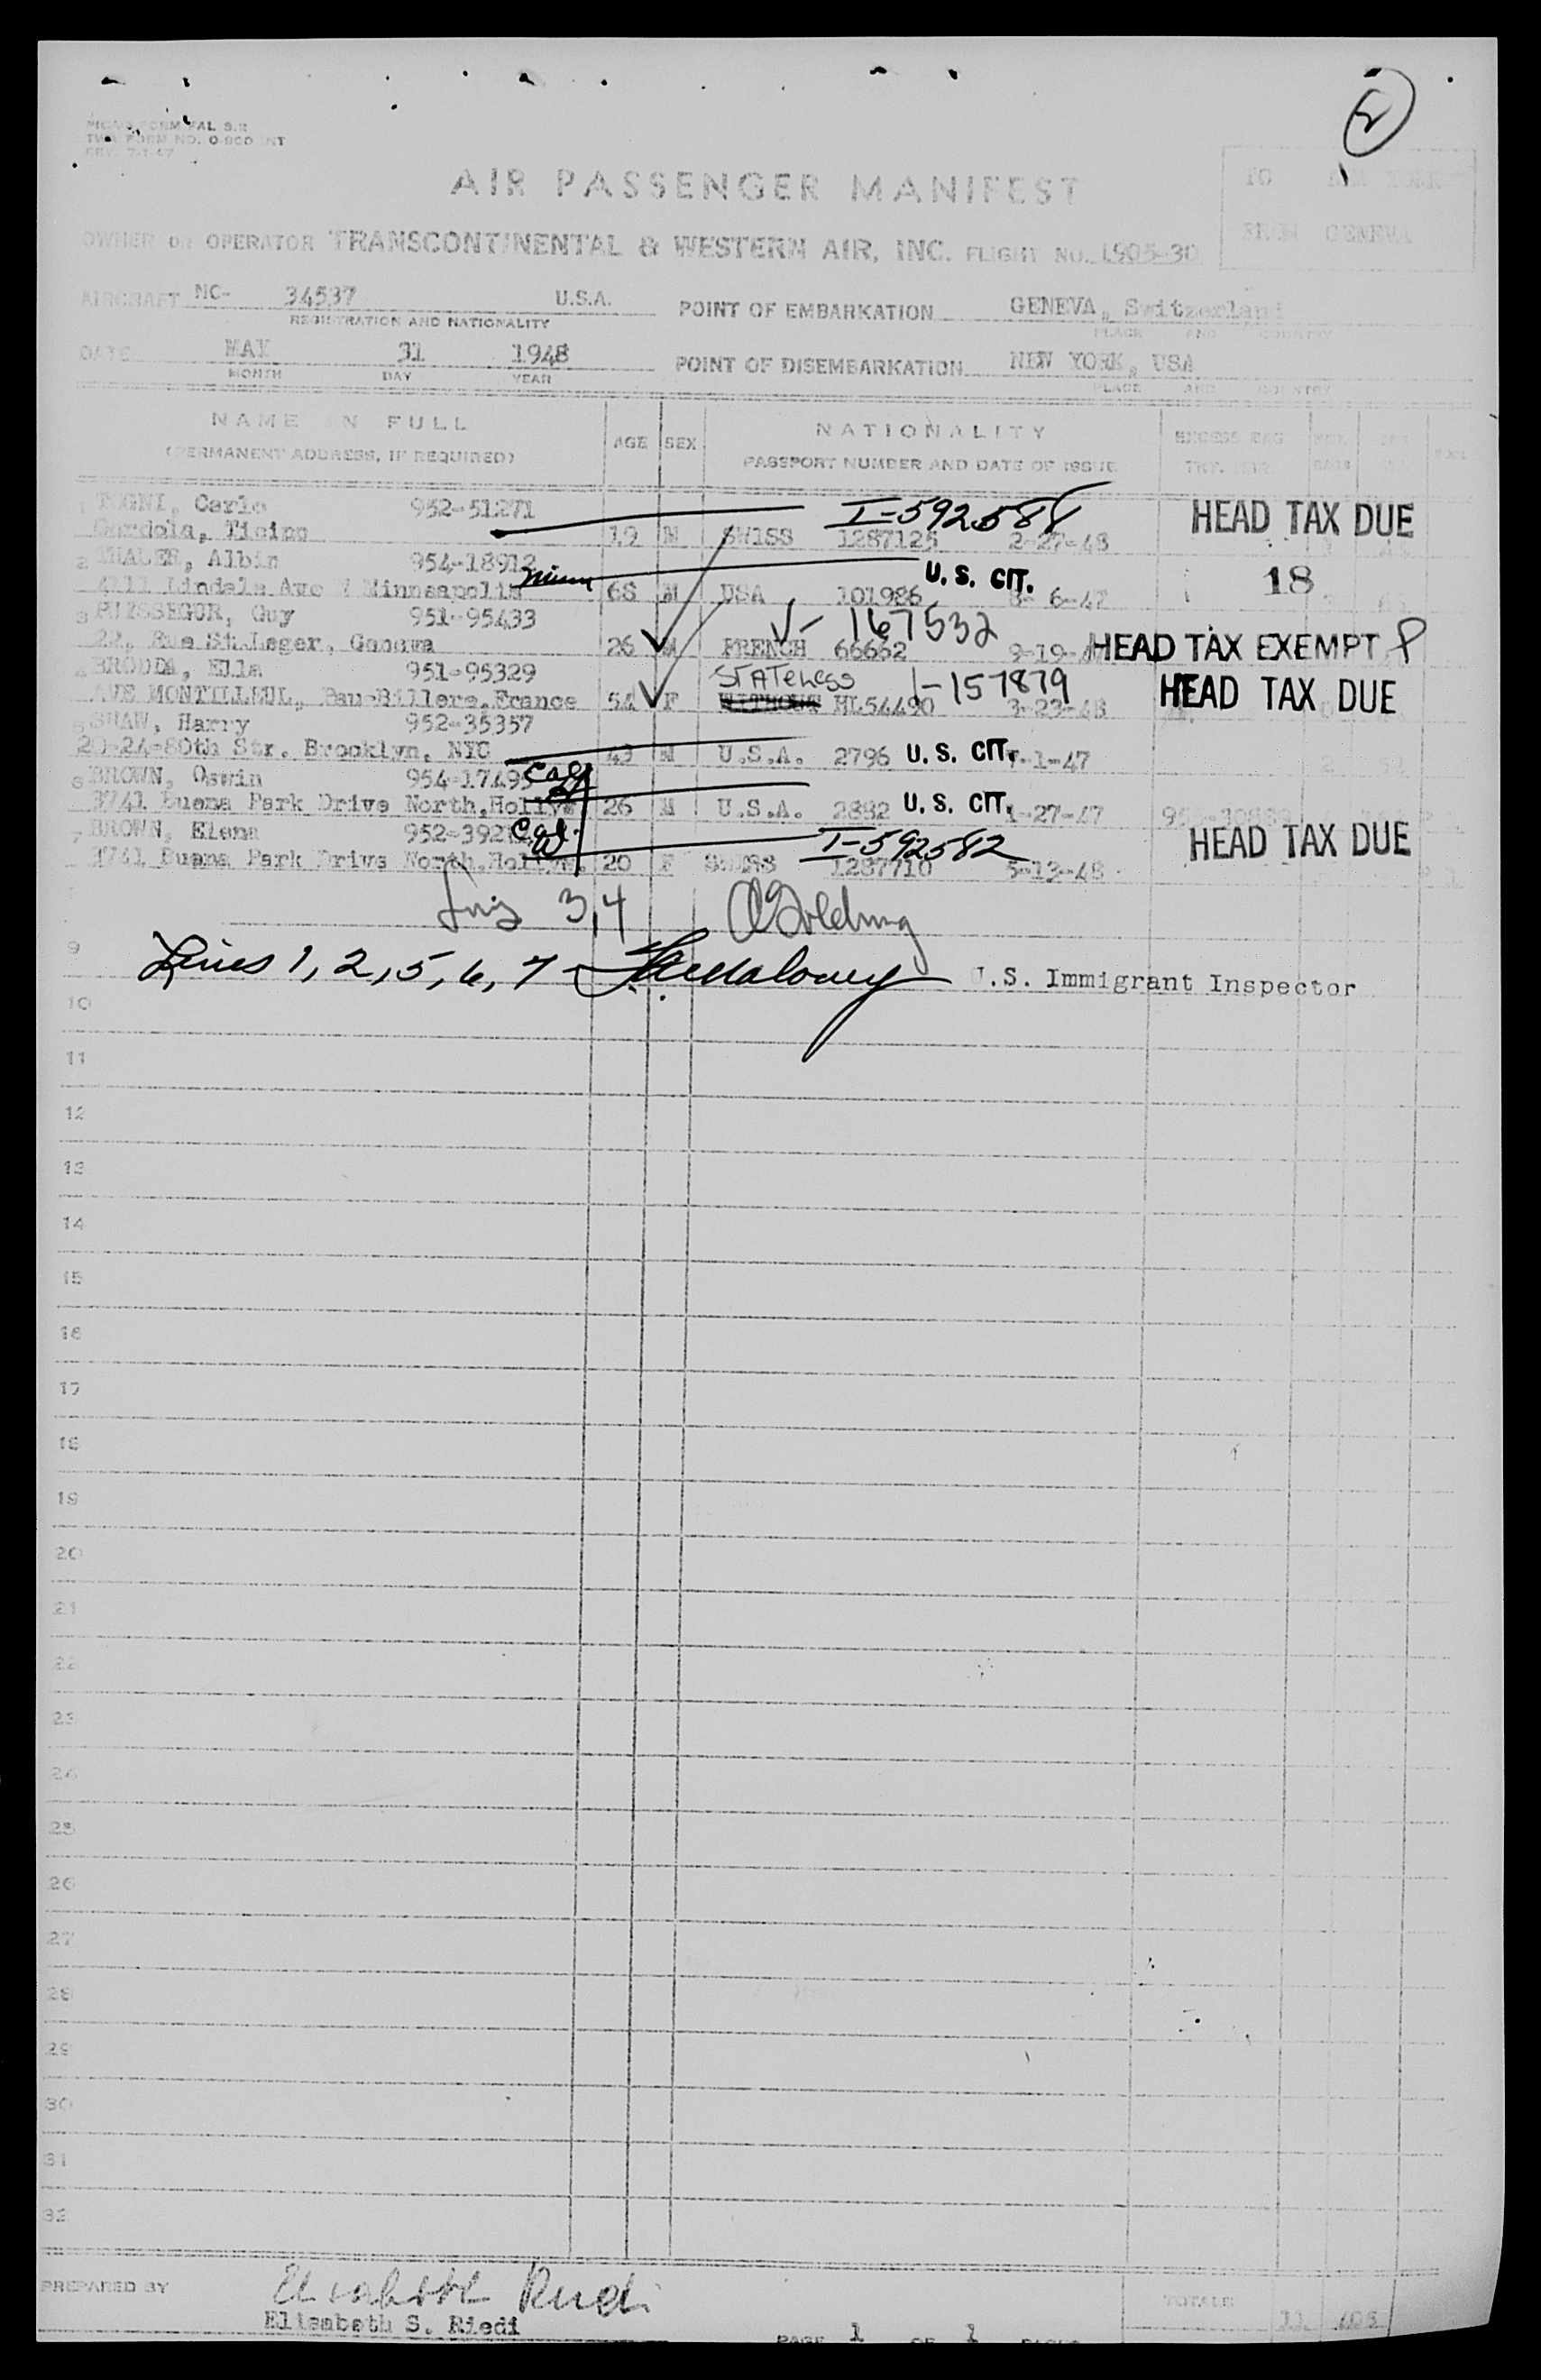 2
TWA FORM NO. 0-800 INT
AIR PASSENGER MANIFEST
TO NEW YORK
FROM GENEVA
OWNER OR OPERATOR TRANSCONTINENTAL & WESTERN AIR, INC. FLIGHT NO. L905-30
AIRCRAFT NC- 34537 U.S.A. POINT OF EMBARKATION GENEVA, Switzerland
REGISTRATION AND NATIONALITY PLACE AND COUNTRY
DATE MAY 31 1948 POINT OF DISEMBARKATION NEW YORK, USA
MONTH DAY YEAR PLACE AND COUNTRY
NAME IN FULL
(PERMANENT ADDRESS, IF REQUIRED)
AGE SEX
NATIONALITY
PASSPORT NUMBER AND DATE OF ISSUE
EXCESS BAG
1 TOGNI, Carlo 952-51271 I-592588 HEAD TAX DUE
Gordola, Ticino 19 M SWISS 1287125 2-27-48
2 THALER, Albin 954-18912 U. S. CIT. 18
Lindale Ave Minneapolis Minn 68 M USA 101986
3 Guy 951-95433 V- 167532
22, Rue St.Leger, Geneva 26 M FRENCH 66662 9-19- HEAD TAX EXEMPT
4 Ella 951-95329 STATELESS I-157879 HEAD TAX DUE
AVE MONTILLEUL, Pau-Billere, France 54 F WITHOUT HL54490 3-23-48
5 SHAW, Harry 952-35357
80th Str. Brooklyn, NYC 43 M U.S.A. 2796 U. S. CIT. -1-47
6 BROWN, Oswin 954-17495 Cal
3741 Buena Park Drive North, Hollyw. 26 M U.S.A. 2882 U. S. CIT. -27-47
7 BROWN, Elena 952-392 Cal. I-592582 HEAD TAX DUE
3741 Buena Park Drive North, Hollyw. 20 F SWISS 1287710 5-13-48
3,4 Golding
9
Lines 1, 2, 5, 6, 7 - Maloney U.S. Immigrant Inspector
10
11
12
13
14
15
16
17
18
19
20
21
22
23
24
25
26
27
28
29
30
31
32
PREPARED BY Elisabeth Riedi TOTALS
Elisabeth S. Riedi 11
PAGE 1 OF 1 PAGES